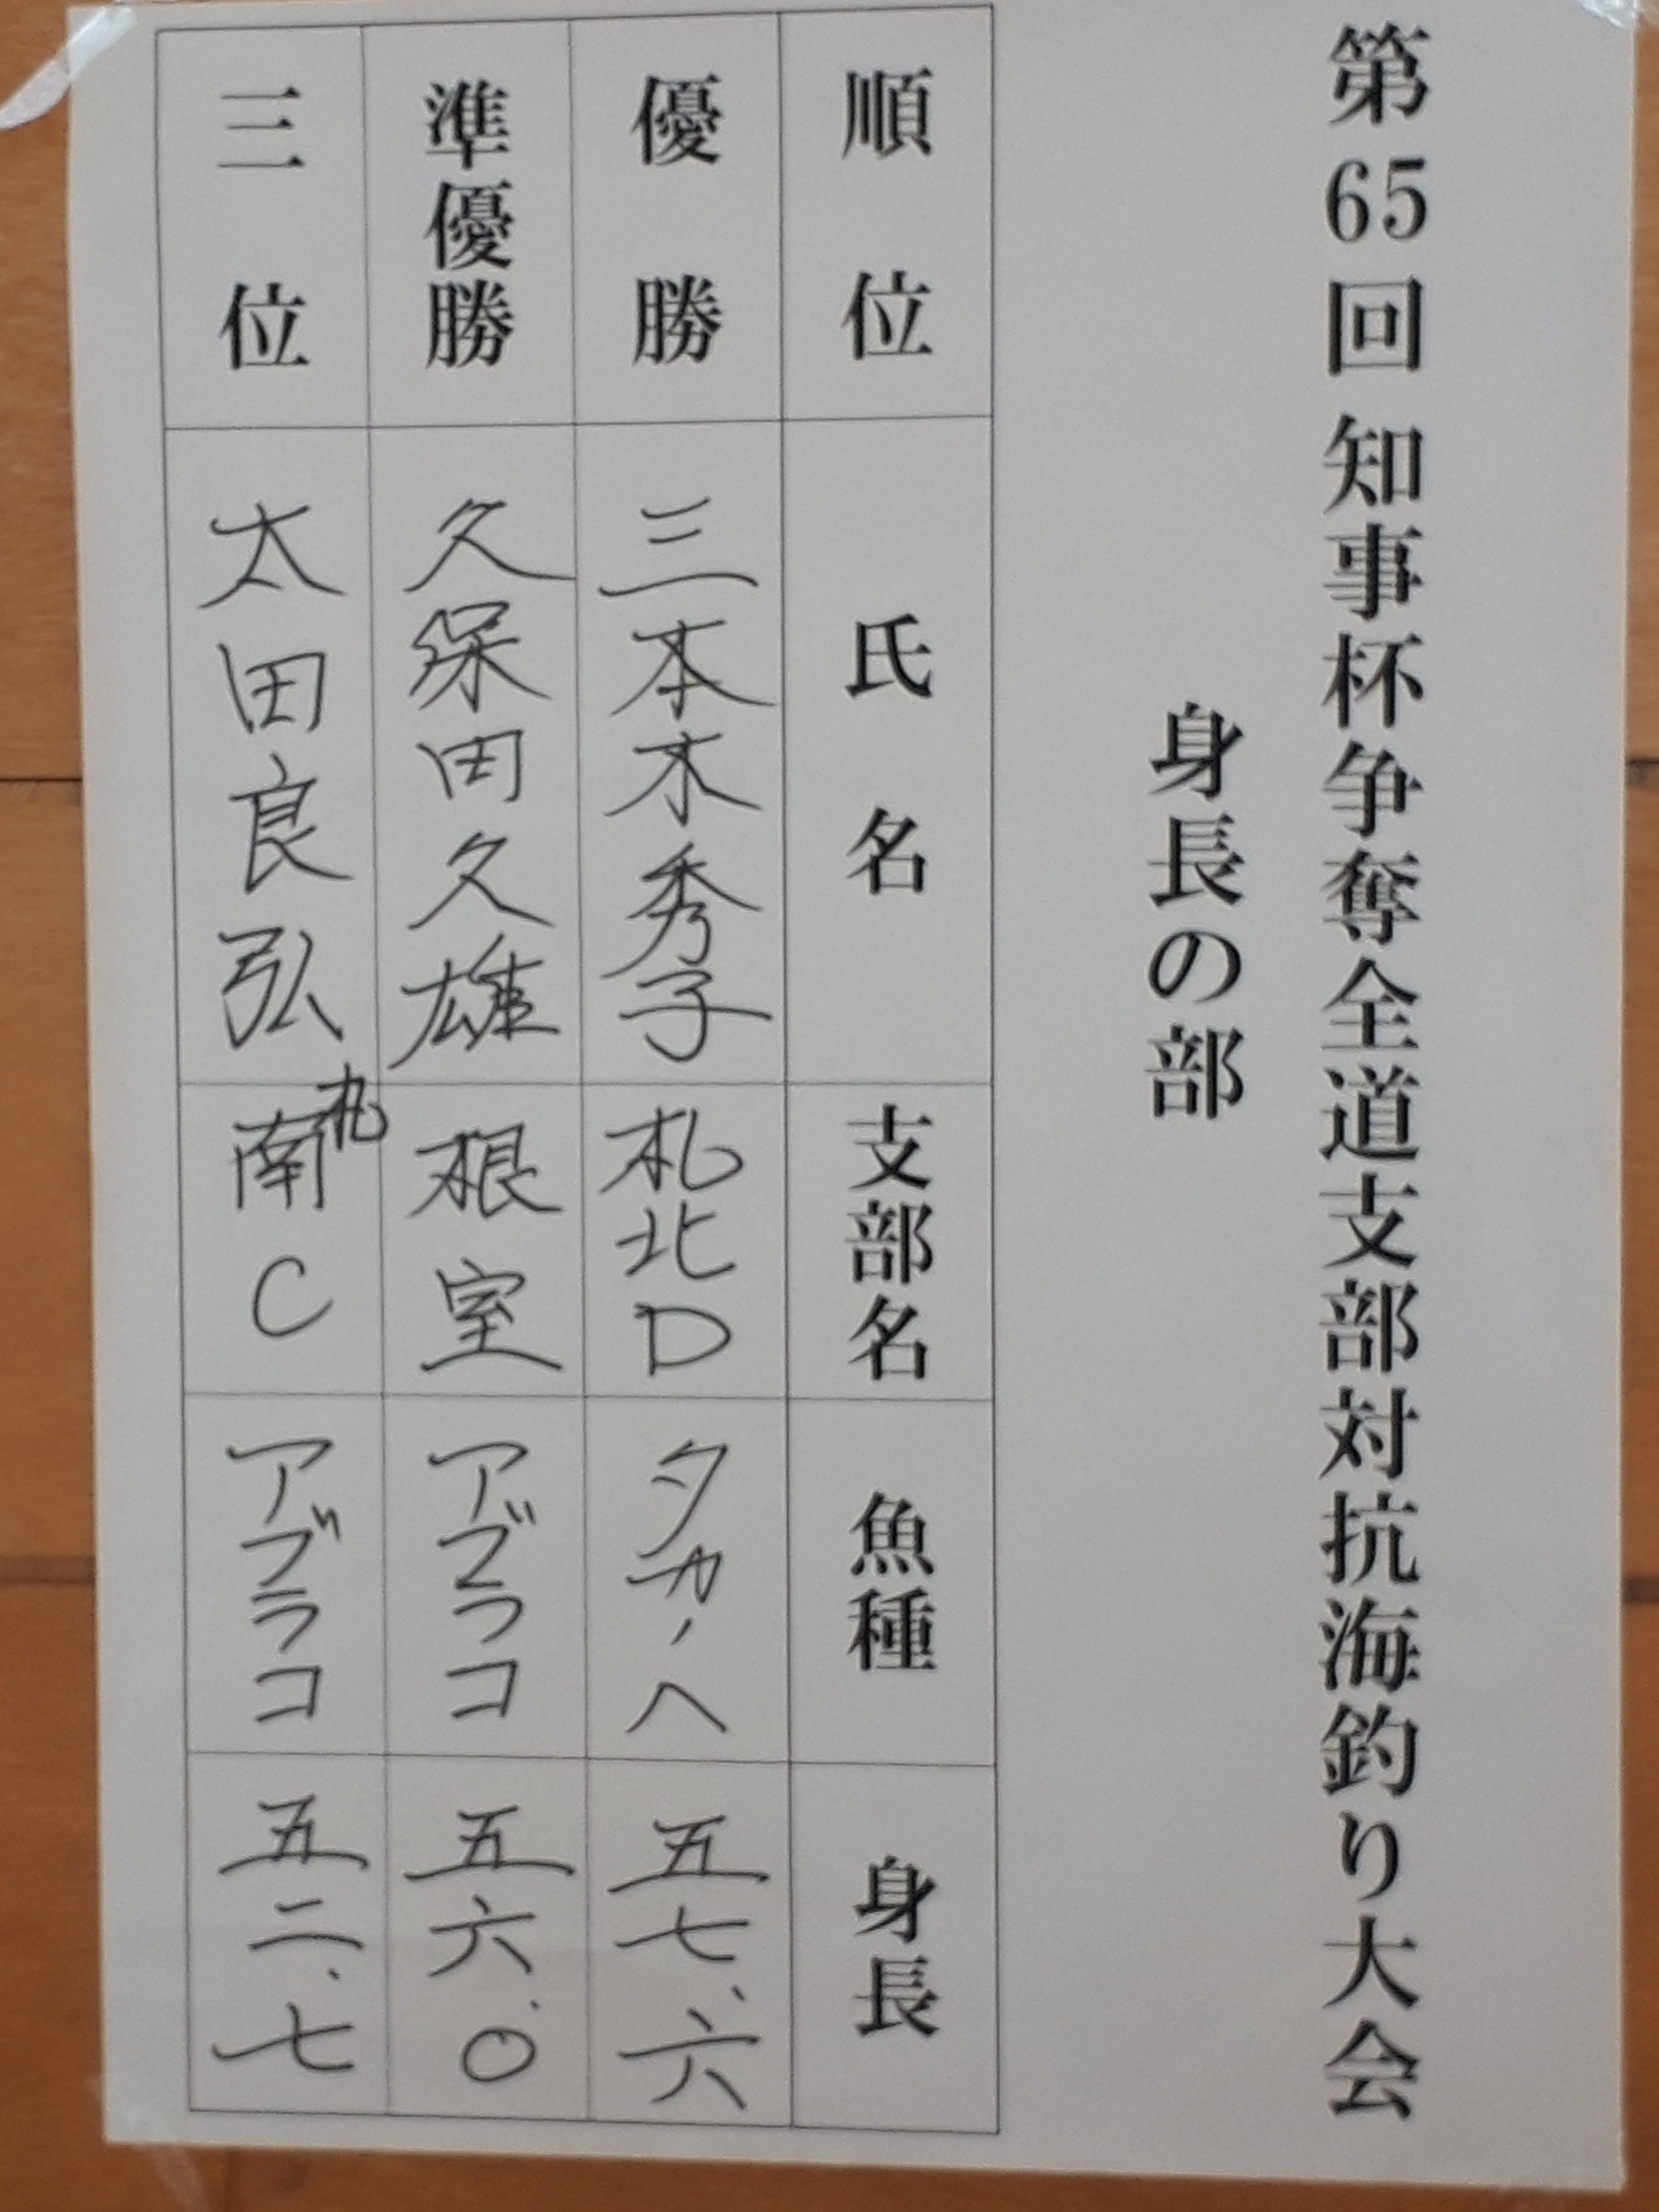 第65回 知事杯争奪全道支部対抗海釣り大会
身長の部
順位 氏名 支部名 魚種 身長
優勝 三本木秀子 札北D タカノハ 五七.六
準優勝 久保田久雄 根室 アブラコ 五六.〇
三位 太田良弘 札南C アブラコ 五二.七